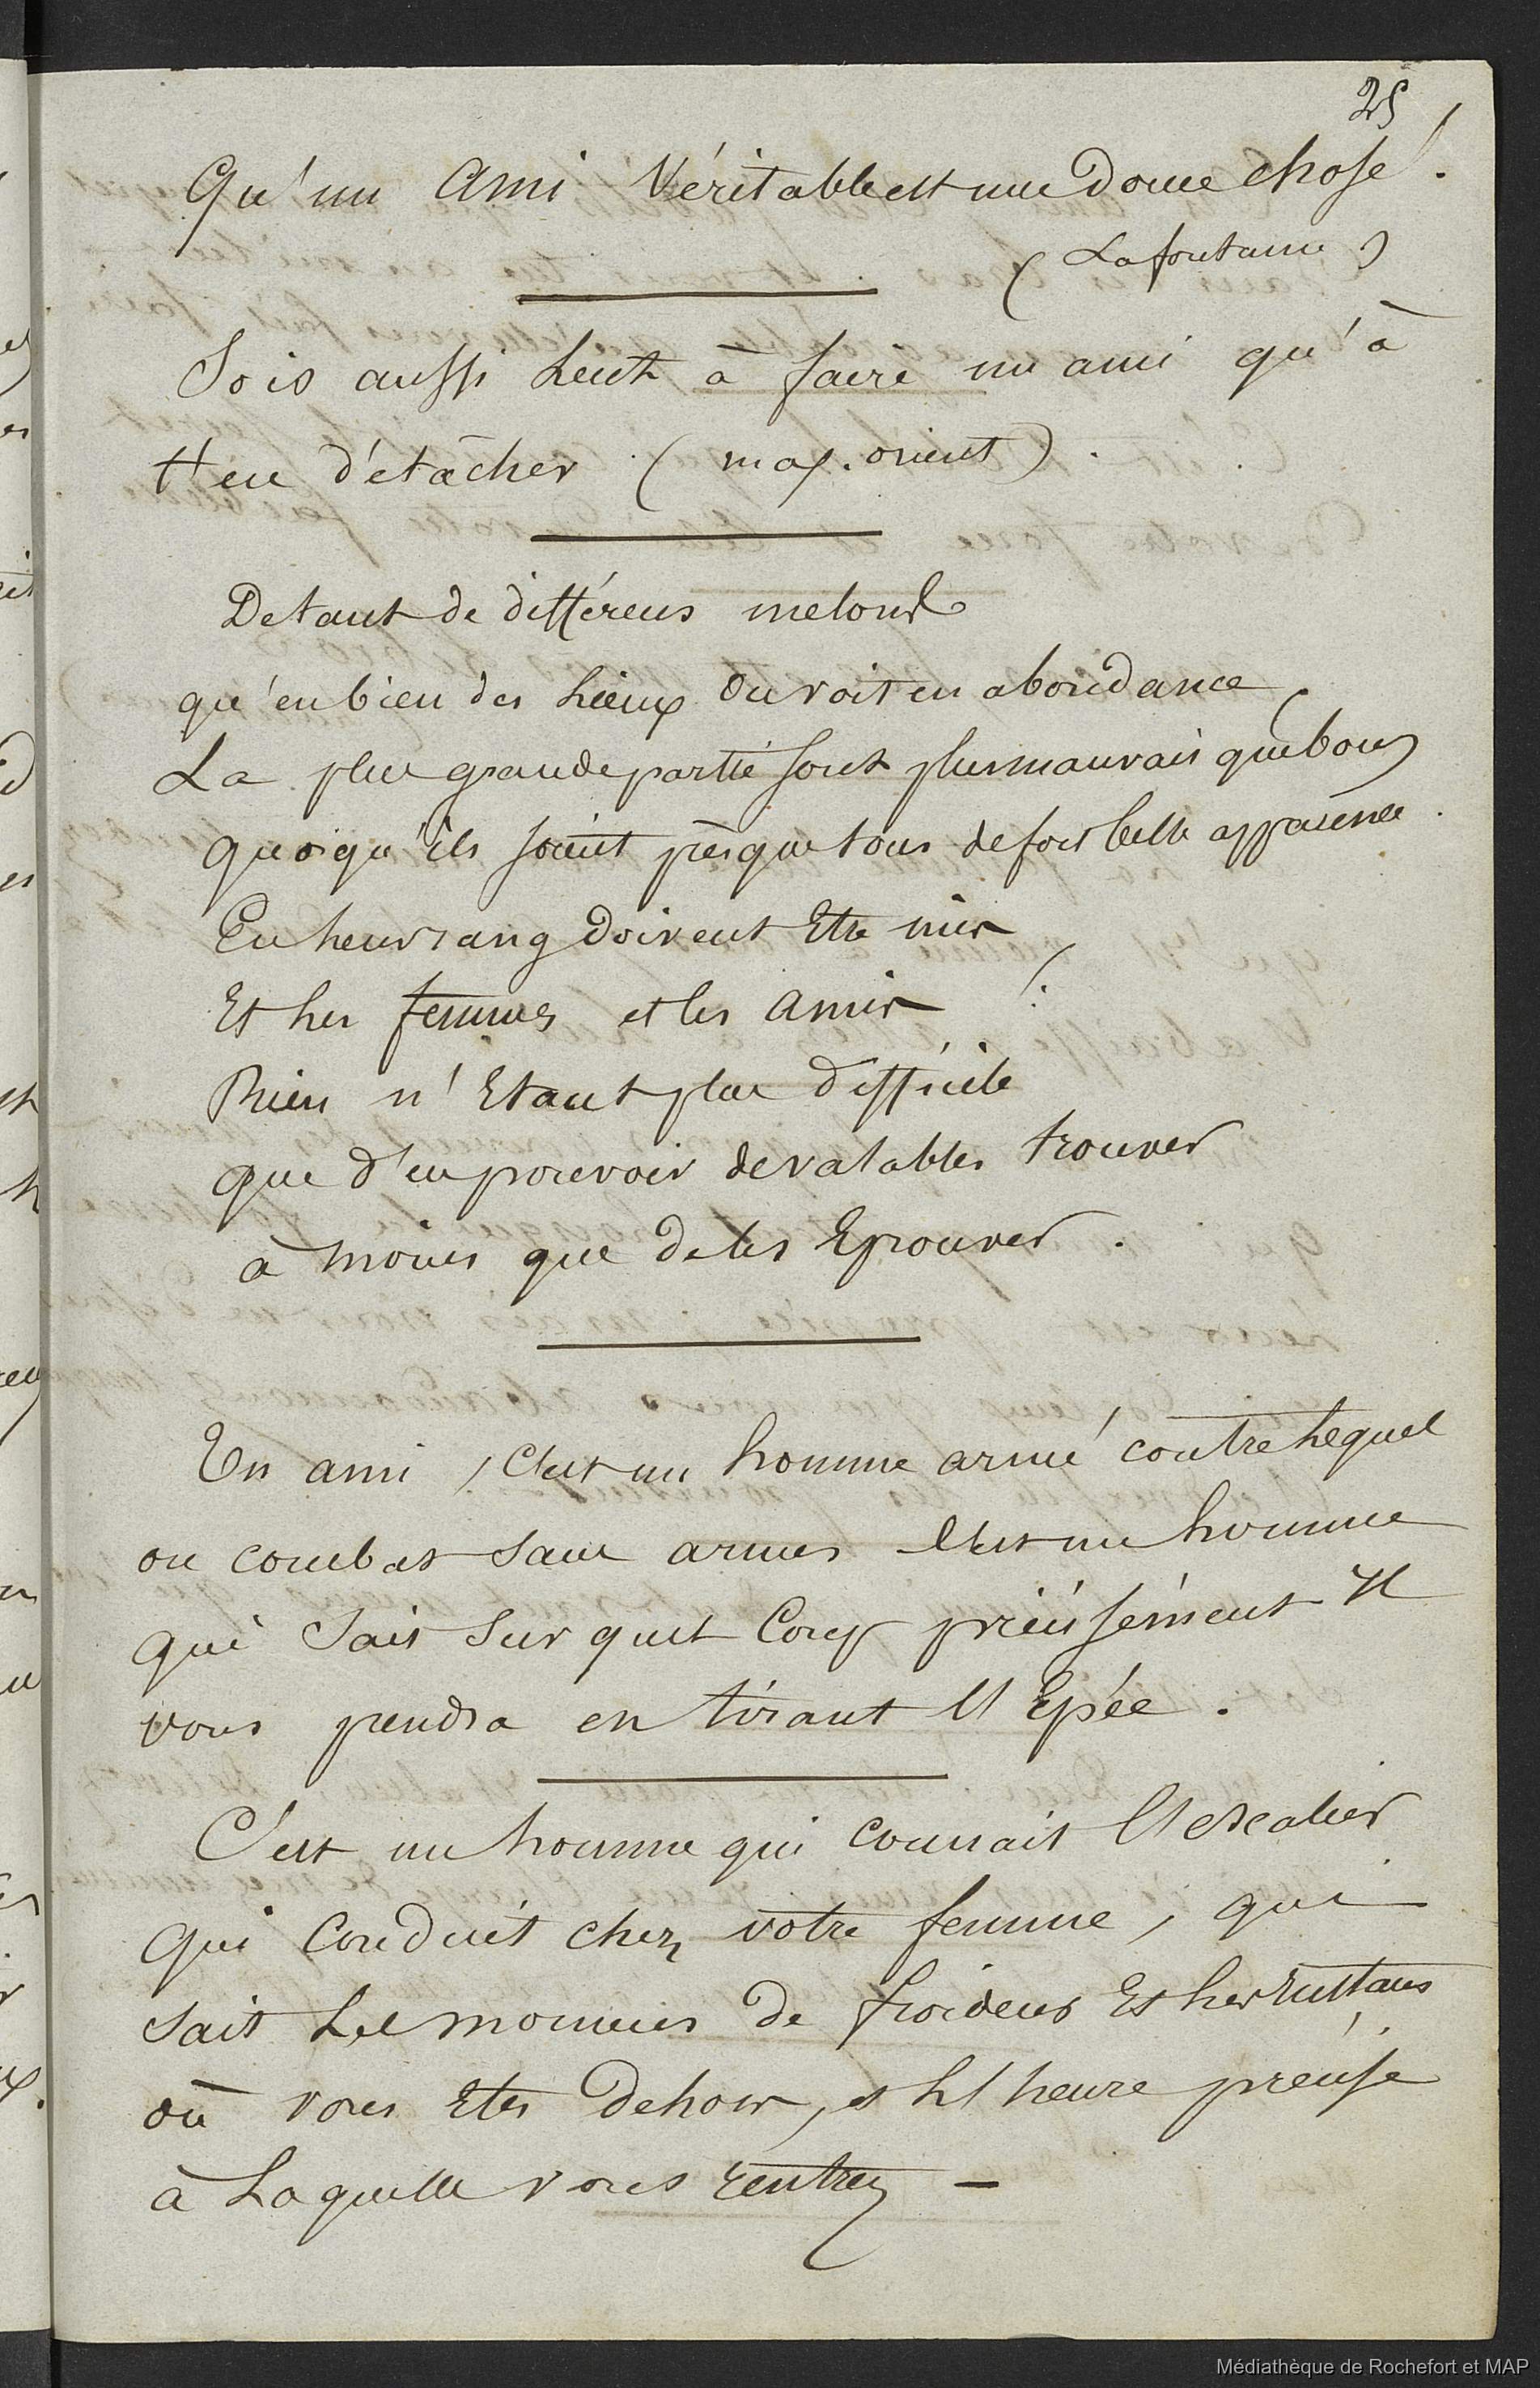 25
Qu'un Ami Véritable est une douce chose !
(Lafontaine)
Sois aussi lent à faire un ami qu'à
t'en détâcher (max. orient).
De tant de différens melons
qu'en bien des lieux on voit en abondance,
La plus grande partie sont plus mauvais que bons
quoiqu'ils soient presque tous de fort belle apparence.
En leur rang doivent Etre mis
Et les femmes et les amis !
Rien n'Etant plus difficile
que d'en pouvoir de valables trouver
à moins que de les Eprouver.
Un ami, c'est un homme armé contre lequel
on combat sans armes c'est un homme
qui sait sur quel Coup précisément il
vous prendra en tirant l'Epée.
C'est un homme qui connait l'escalier
qui conduit chez votre femme, qui
sait les momens de froideur Et les instans
où vous Etes dehors, et l'heure précise
à Laquelle vous rentrez —
Médiathèque de Rochefort et MAP